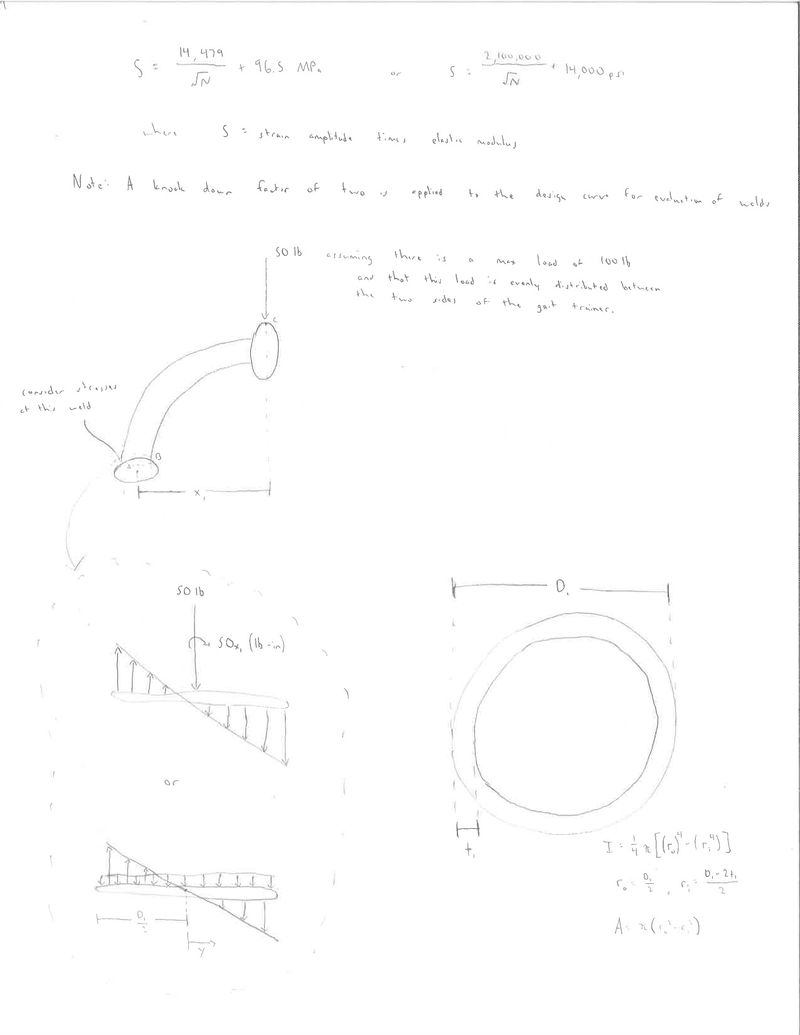 S = 14,479/√N + 96.5 MPa or S = 2,100,000/√N + 14,000 psi
where S = strain amplitude times elastic modulus
Note: A knock down factor of two is applied to the design curve for evaluation of welds
50 lb assuming there is a max load of 100 lb
and that this load is evenly distributed between
the two sides of the gait trainer.
C
consider stresses
at this weld
B
x₁
50 lb
50x₁ (lb-in)
or
D₁/2
y
D₁
t₁
I = 1/4 π[(r₀)⁴-(rᵢ⁴)]
r₀ = D₁/2, rᵢ = D₁-2t₁/2
A = π(r₀²-rᵢ²)